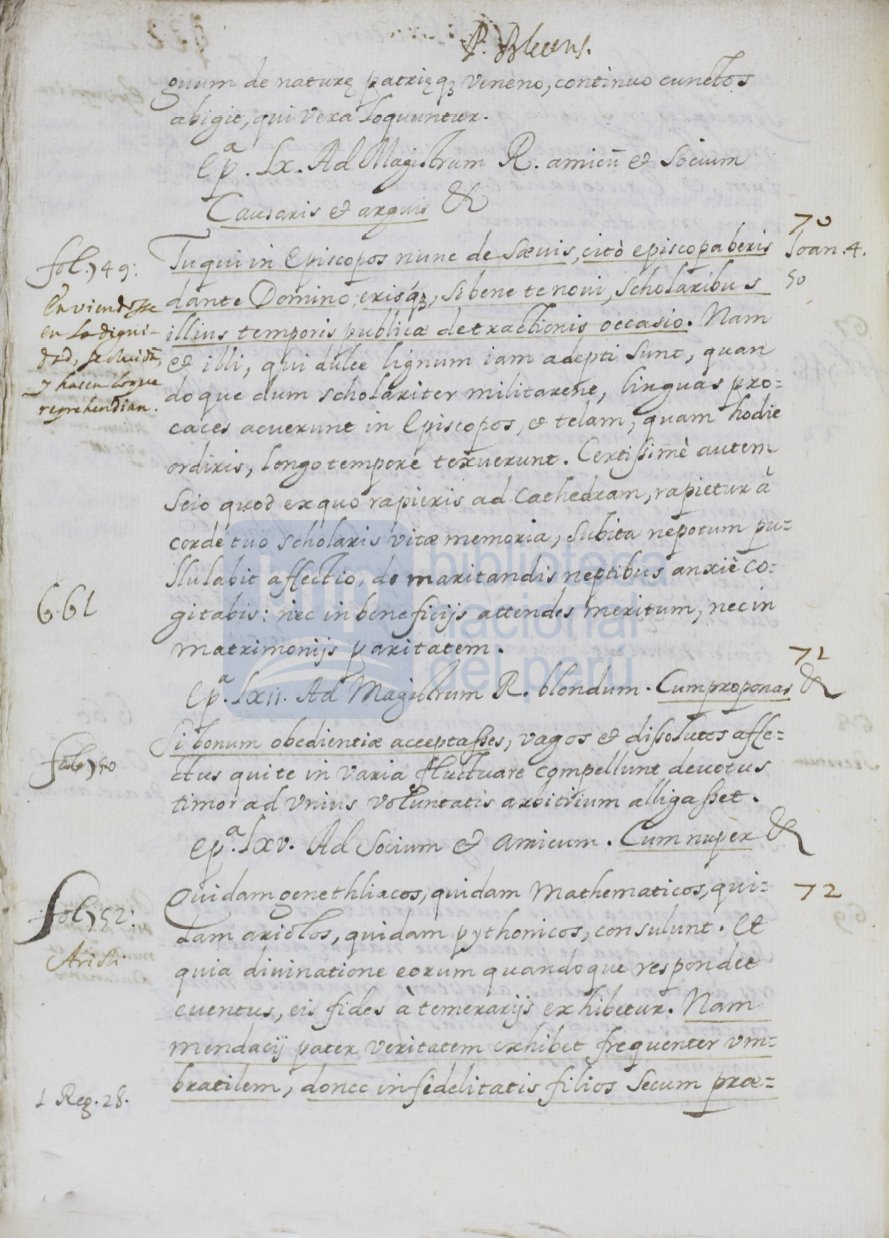 P. Blesens.
guum de naturę patrięq; veneno, continuo cunctos
abigit, qui vera loquuntur.
Epª. lx. Ad Magistrum R. amicū et Socium
Causaris et arguis &
70
fol. 749:
Tu qui in Episcopos nunc de sævis, citò episcopaberis
Joan. 4.
50
En viendose
en la digni-
dad, se
y hacen lo que
reprehendian.
dante Domino, erisq;, si bene te novi, scholaribus
illius temporis publicæ detractionis occasio. Nam
et illi, qui dulce lignum iam adepti sunt, quan
doque dum scholariter militarent, linguas pro=
caces acuerunt in Episcopos, et telam, quam hodie
ordiris, longo tempore texuerunt. Certissimè autem
scio quod ex quo rapieris ad cathedram, rapietur à
corde tuo scholaris vitæ memoria, subita nepotum pu-
llulabit affectio, de maritandis neptibus anxiè co-
661
gitabis: nec in beneficijs attendes meritum, nec in
matrimonijs paritatem.
71
Epª. lxii. Ad Magistrum R. blondum. Cum proponas &
fol. 750
Si bonum obedientiæ acceptasses, vagos et dissolutos affe-
ctus qui te in varia fluctuare compellunt devotus
timor ad unius voluntatis arbitrium alligasset.
Epª. lxv. Ad Socium & amicum. Cum nuper &
fol. 752:
72
Quidam genethliacos, quidam Mathematicos, qui-
dam ariolos, quidam pythonicos, consulunt. Et
quia divinatione eorum quandoque respondet
eventus, eis fides à temerarijs exhibetur. Nam
mendacij pater veritatem exhibet frequenter vm-
bratilem, donec infidelitatis filios secum præ-
1 Reg. 28.
biblioteca
nacional
del perú